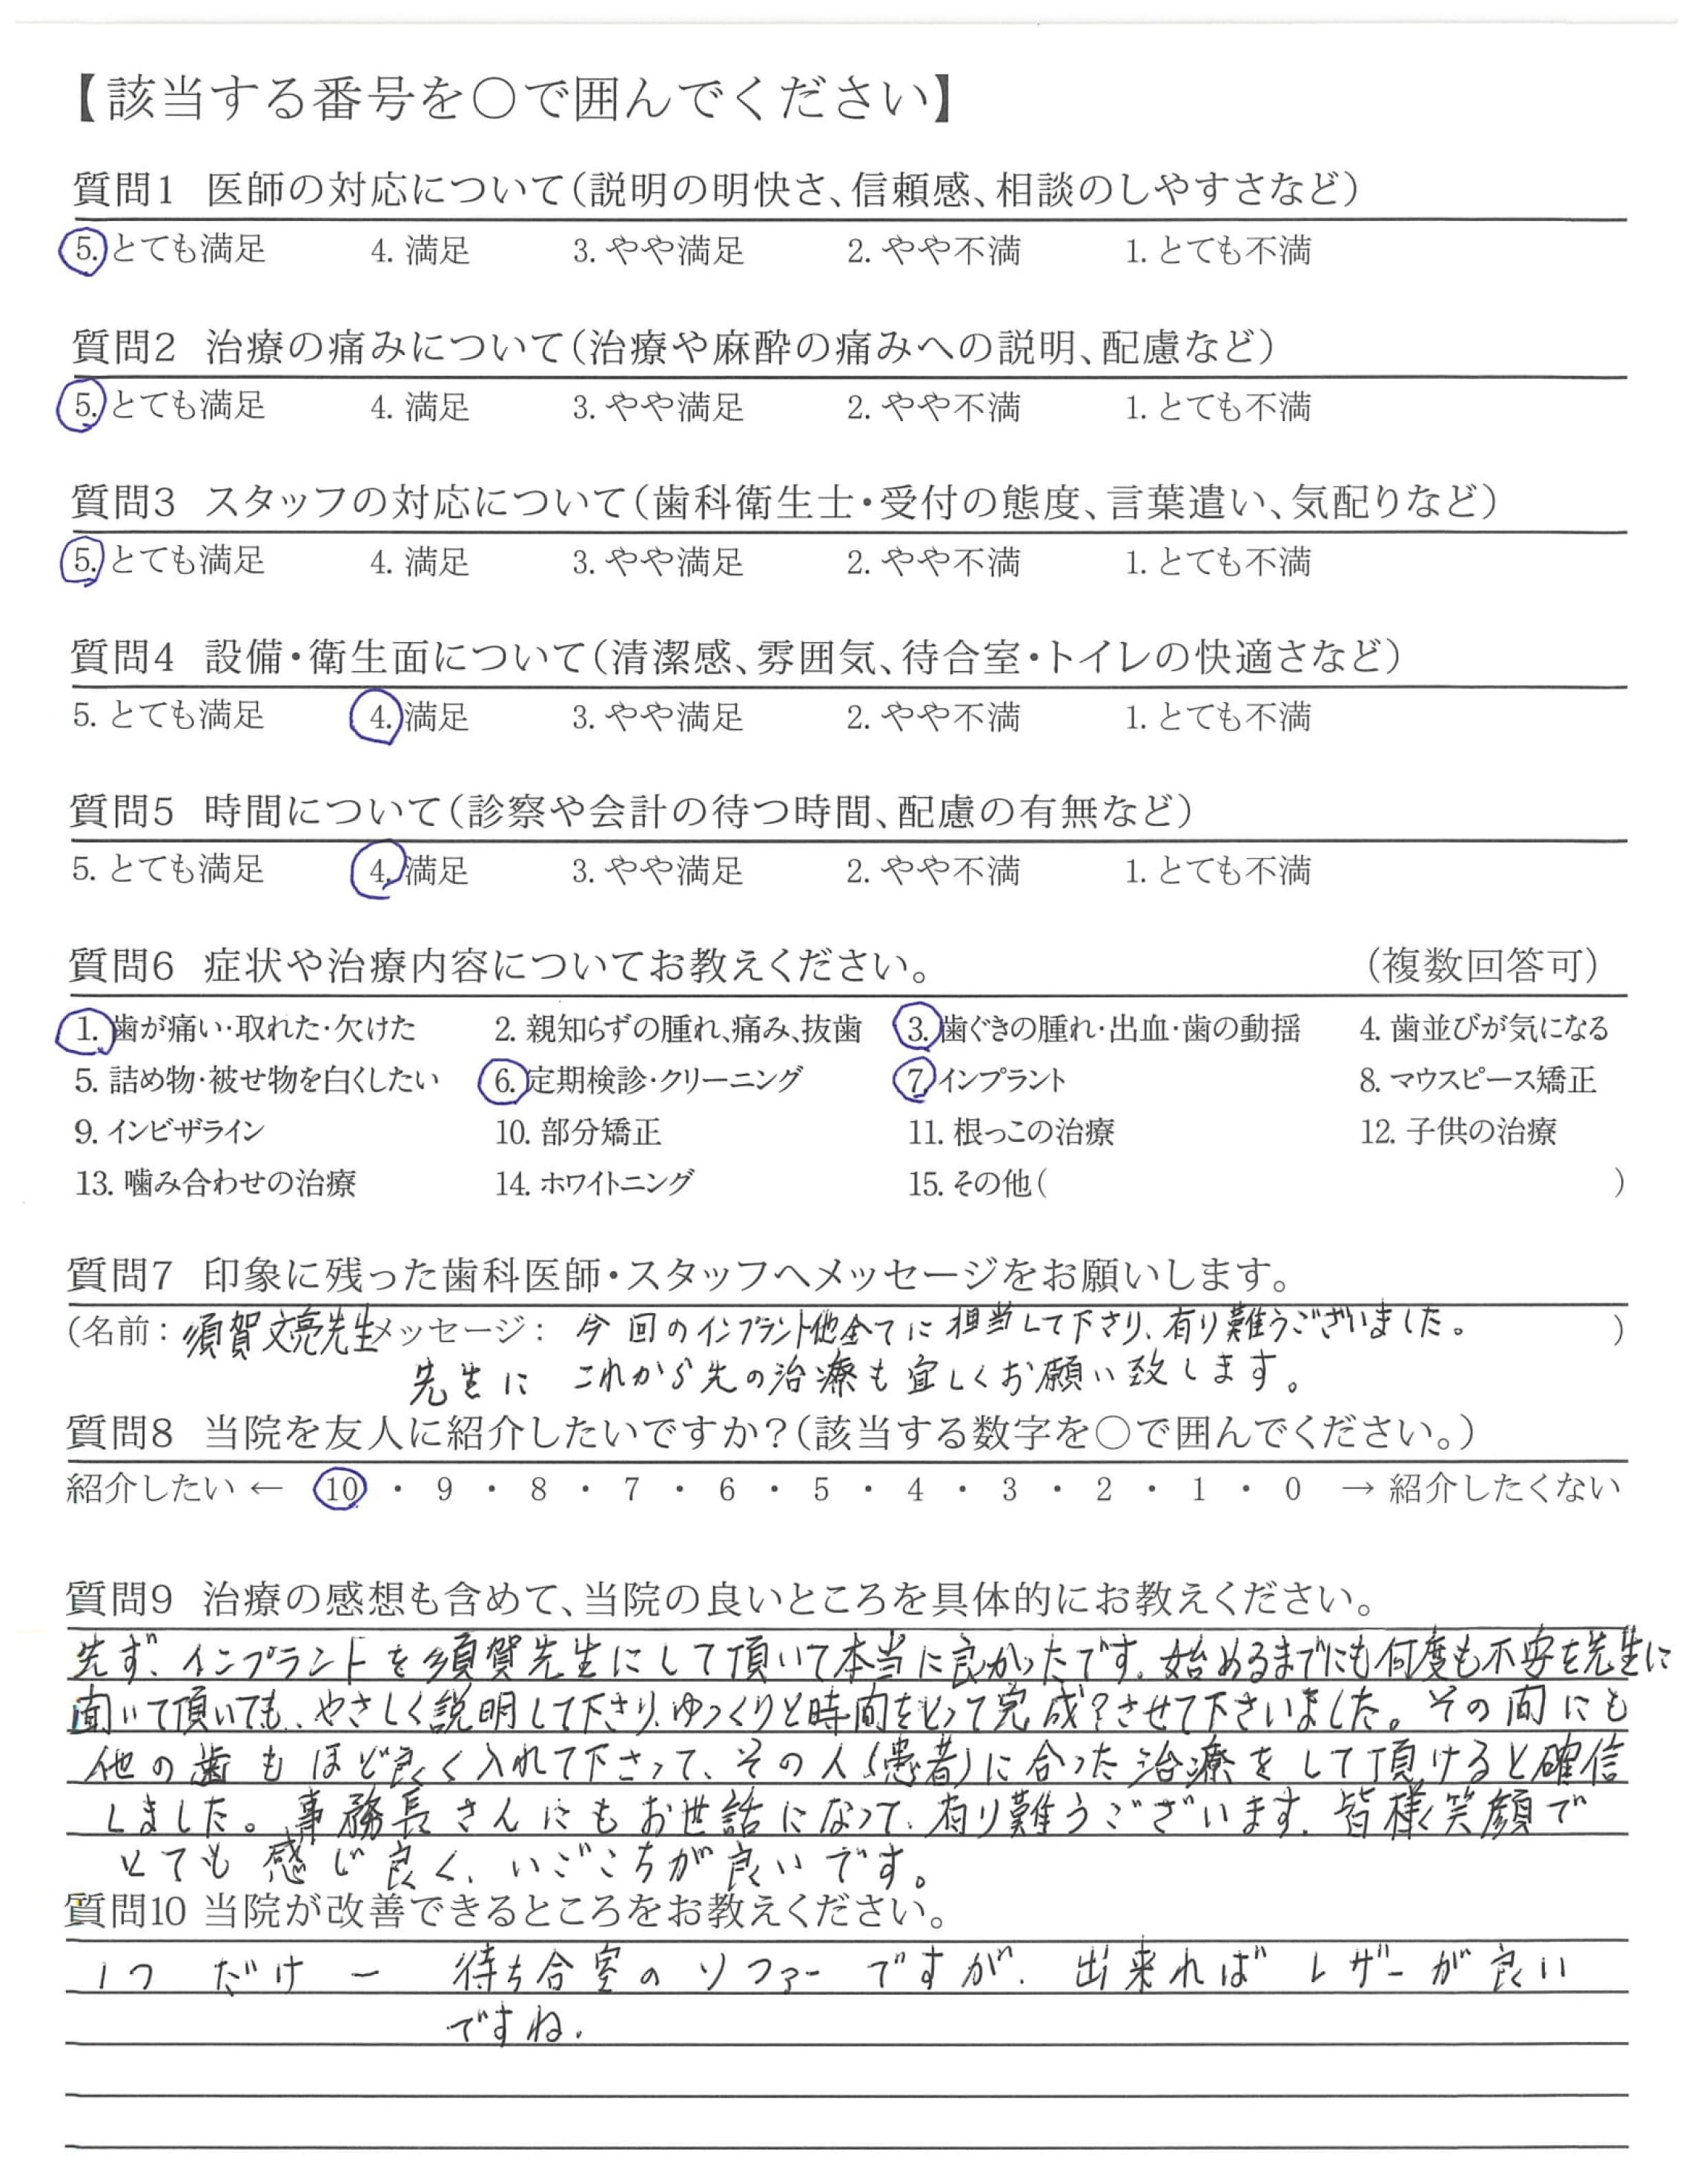 【該当する番号を○で囲んでください】
質問1 医師の対応について(説明の明快さ、信頼感、相談のしやすさなど)
5. とても満足 4. 満足 3. やや満足 2. やや不満 1. とても不満
質問2 治療の痛みについて(治療や麻酔の痛みへの説明、配慮など)
5. とても満足 4. 満足 3. やや満足 2. やや不満 1. とても不満
質問3 スタッフの対応について(歯科衛生士・受付の態度、言葉遣い、気配りなど)
5. とても満足 4. 満足 3. やや満足 2. やや不満 1. とても不満
質問4 設備・衛生面について(清潔感、雰囲気、待合室・トイレの快適さなど)
5. とても満足 4. 満足 3. やや満足 2. やや不満 1. とても不満
質問5 時間について(診察や会計の待つ時間、配慮の有無など)
5. とても満足 4. 満足 3. やや満足 2. やや不満 1. とても不満
質問6 症状や治療内容についてお教えください。 (複数回答可)
1. 歯が痛い・取れた・欠けた 2. 親知らずの腫れ、痛み、抜歯 3. 歯ぐきの腫れ・出血・歯の動揺 4. 歯並びが気になる
5. 詰め物・被せ物を白くしたい 6. 定期検診・クリーニング 7. インプラント 8. マウスピース矯正
9. インビザライン 10. 部分矯正 11. 根っこの治療 12. 子供の治療
13. 噛み合わせの治療 14. ホワイトニング 15. その他( )
質問7 印象に残った歯科医師・スタッフへメッセージをお願いします。
(名前: 須賀文亮先生 メッセージ: 今回のインプラント他全てに担当して下さり、有り難うございました。 )
先生に これから先の治療も宜しくお願い致します。
質問8 当院を友人に紹介したいですか?(該当する数字を○で囲んでください。)
紹介したい ← 10 ・ 9 ・ 8 ・ 7 ・ 6 ・ 5 ・ 4 ・ 3 ・ 2 ・ 1 ・ 0 → 紹介したくない
質問9 治療の感想も含めて、当院の良いところを具体的にお教えください。
先ず、インプラントを須賀先生にして頂いて本当に良かったです。始めるまでにも何度も不安を先生に
聞いて頂いても、やさしく説明して下さり、ゆっくりと時間をとって完成?させて下さいました。その間にも
他の歯もほど良く入れて下さって、その人(患者)に合った治療をして頂けると確信
しました。事務長さんにもお世話になって、有り難うございます。皆様笑顔で
とても感じ良く、いごこちが良いです。
質問10 当院が改善できるところをお教えください。
1つだけー 待ち合室のソファーですが、出来ればレザーが良い
ですね。